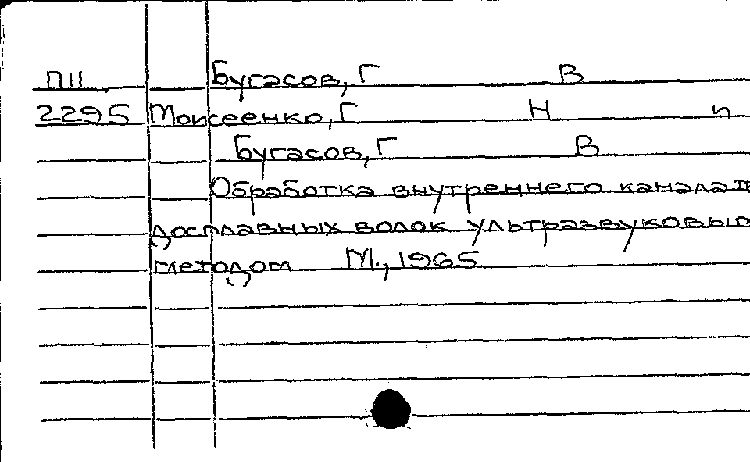 П11 Бугасов, Г В
2295 Моисеенко, Г Н и
Бугасов, Г В
Обработка внутреннего канала
волок ультразвуковым
методом М., 1965